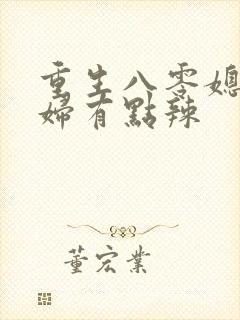 重生八零媳
婦有點辣
董宏業